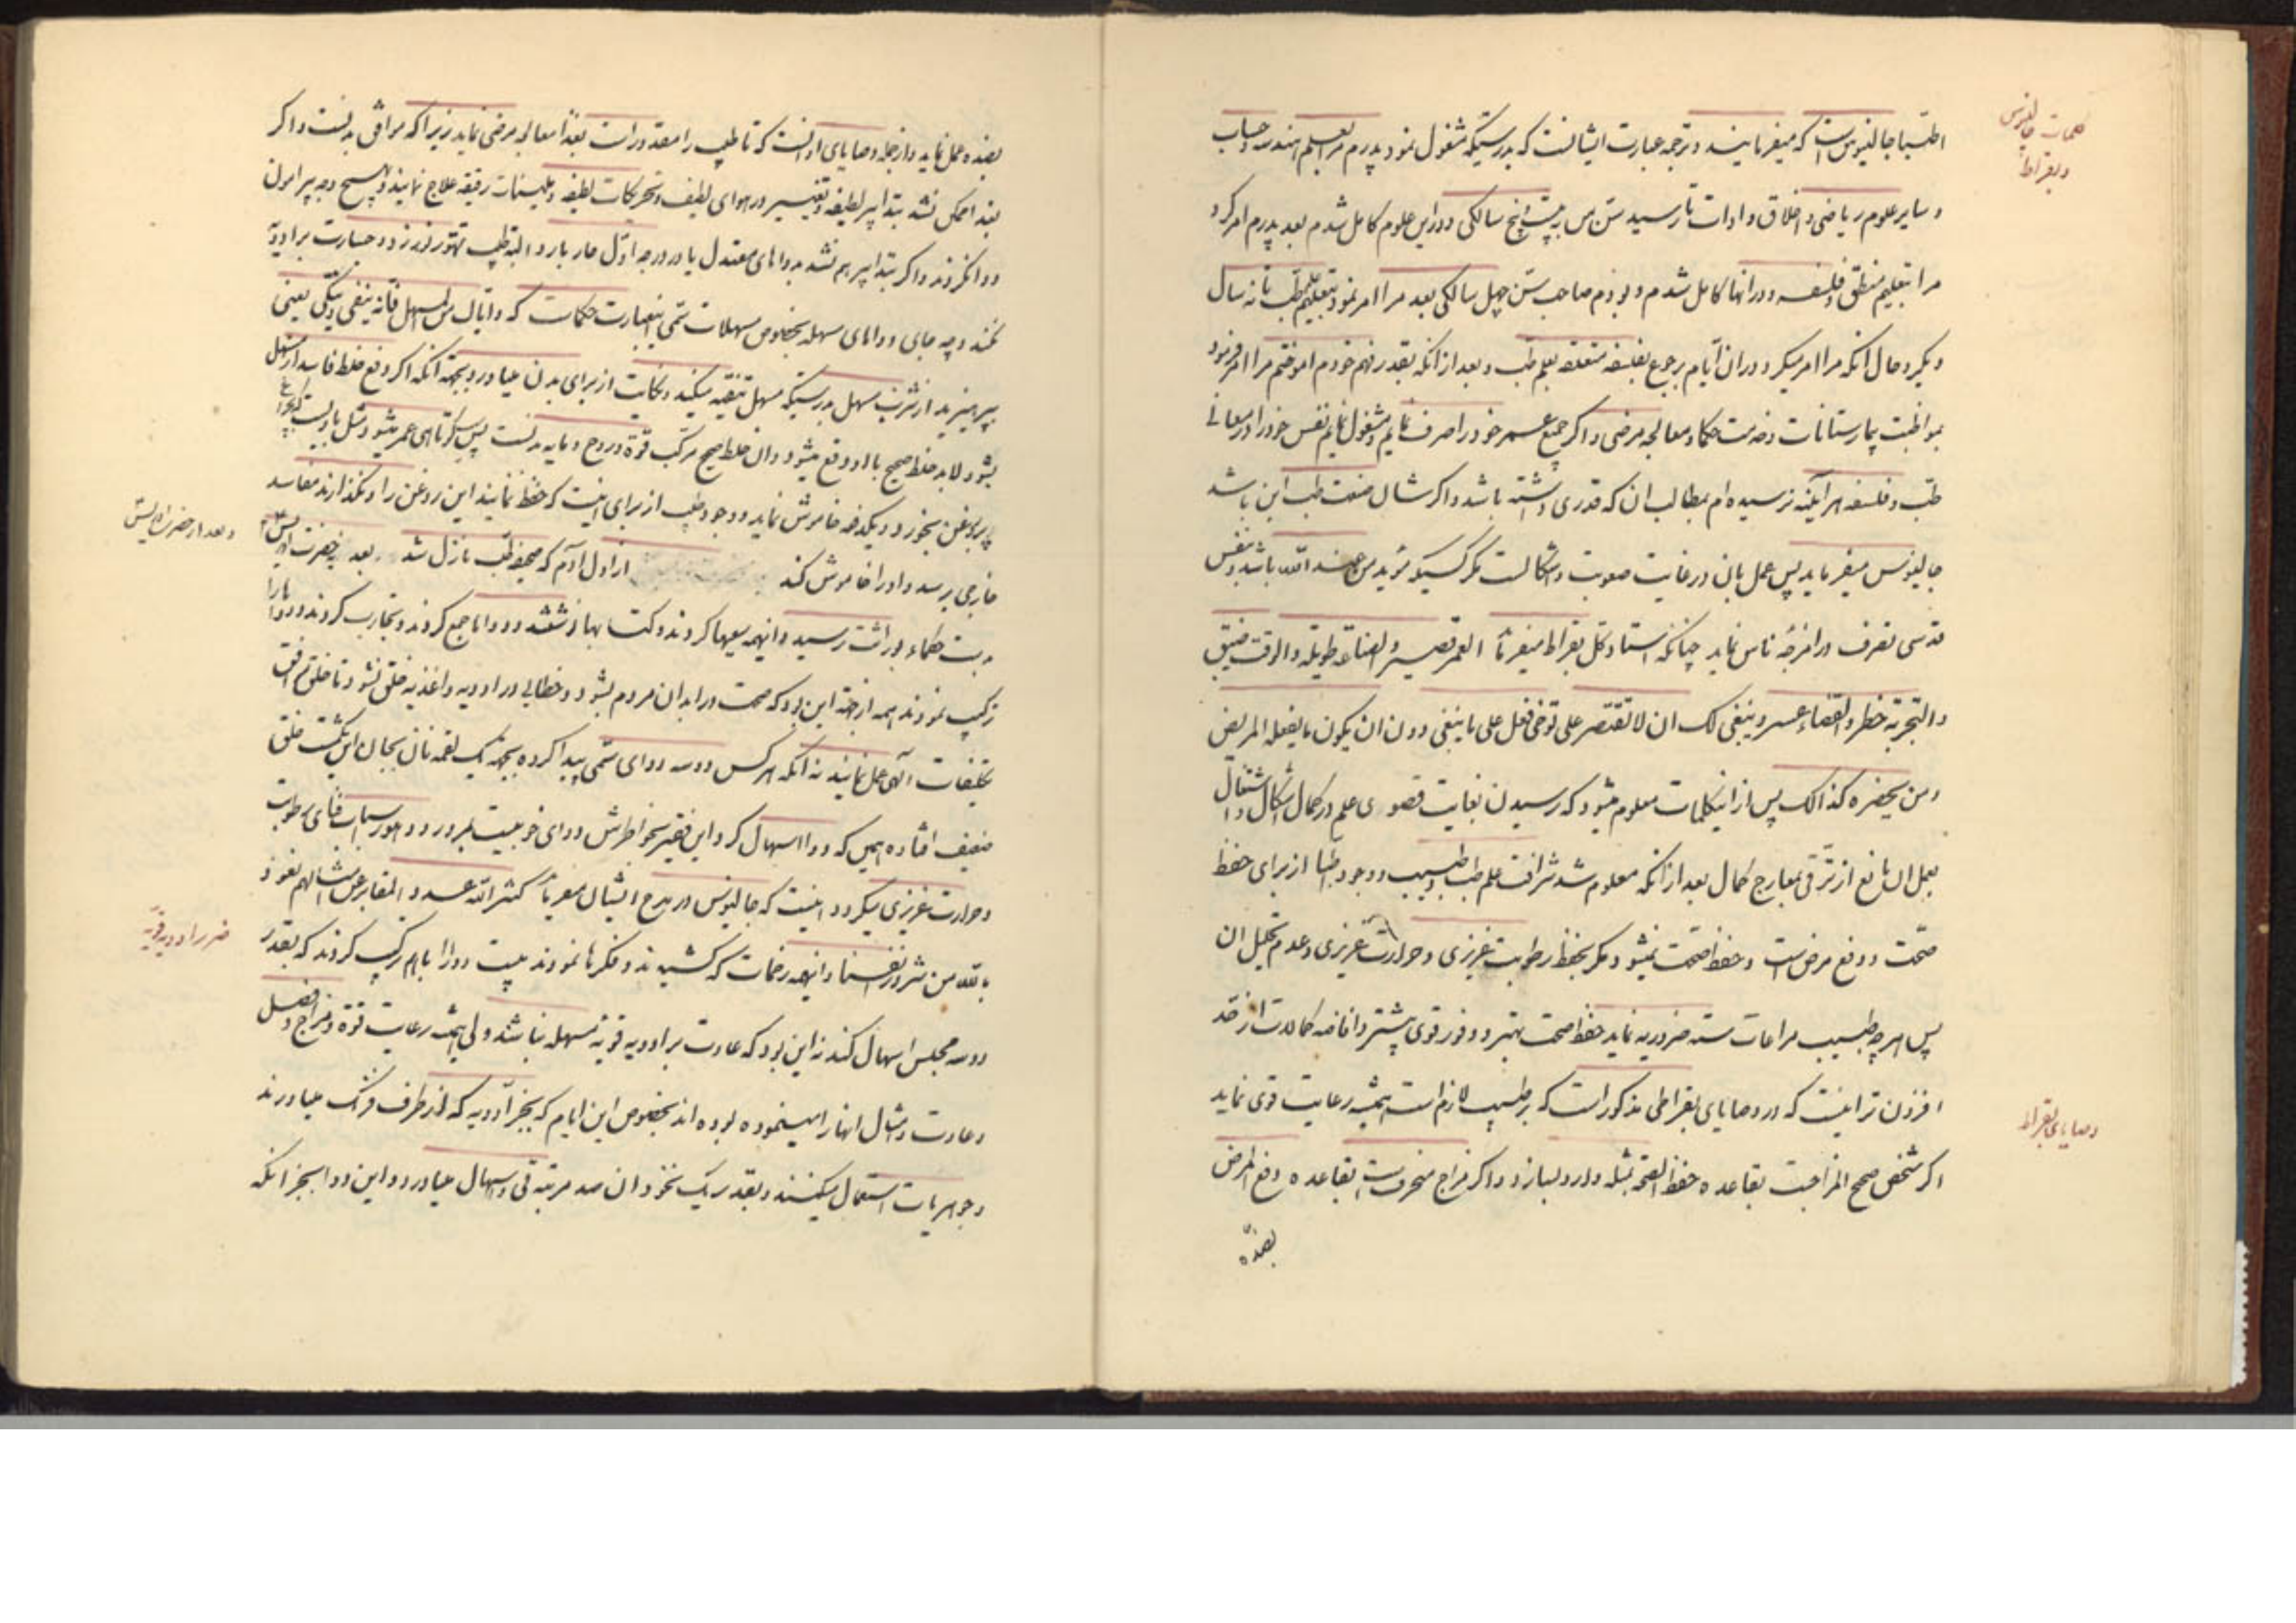 کلمات جالینوس
و بقراط
اطبا جالینوس است که میفرمایند و ترجمه عبارت ایشانست که بدرستیکه مشغول نمود پدرم مرا بعلم هندسه و حساب
و سایر علوم ریاضی و اخلاق و ادات تا رسید سن من به بیست و پنج سالکی و دراین علوم کامل شدم بعد پدرم امر کرد
مرا بتعلیم منطق و فلسفه و درانها کامل شدم و بودم صاحب سن چهل سالکی بعد مرا امر نمود بتعلیم علم طب تا نه سال
دیکر و حال انکه مرا امر میکرد دران ایام برجوع بفلسفه متعلقه بعلم طب و بعد از انکه بقدر فهم خودم اموختم مرا امر فرمود
بمواظبت بیمارستانات و خدمت حکما و معالجه مرضی و اکر جمیع عمر خود را صرف نمایم و مشغول نمایم نفس خود را در معانی
طب و فلسفه هر آینه نرسیده ام بمطالب ان که قدری داشته باشد و اکر شال صنعت طب این باشد
جالینوس میفرماید پس عمل بان در غایت صعوبت و اشکالست مکر کسیکه مؤید من عند الله باشد و بنفس
قدسی تصرف در امزجه ناس نماید چنانکه استاد کل بقراط میفرماید العمر قصیر و الصناعة طویله و الوقت ضیق
و التجربة خطر و القضاء عسر و ینبغی لک ان لا تقتصر علی توخی فعل علی ما ینبغی دون ان یکون ما یفعله المریض
و من یحضره کذالک پس از اینکلمات معلوم میشود که رسیدن بغایت قصوی علم در کمال اشکال و اشتغال
بعمل ان مانع از ترقی بمعارج کمال بعد از انکه معلوم شد شرافت علم طب و طبیب و وجود اطبا از برای حفظ
صحت و دفع مرض است و حفظ صحت نمیشود مکر بحفظ رطوبت غریزی و حرارت غریزی و عدم تحلیل ان
پس هر چه طبیب مراعات سته ضروریه نماید حفظ صحت بهتر و وفور قوی بیشتر و افاضه کمالات از حد
افزون تر اینست که در وصایای بقراطی مذکور است که بر طبیب لازم است همیشه رعایت قوی نماید
وصایای بقراط
اکر شخص صحیح المزاجست بقاعده حفظ الصحه بمثله وارد لسازد و اکر مزاج منحرفست بقاعده دفع المرض
بضده
بضده عمل نماید و از جمله وصایای او انست که تا طبیب را مقدور است بغذا معالجه مرضی نماید زیرا که موافق بدنست و اکر
بغذا ممکن نشد بتدابیر لطیفه و تغییر در هوای لطیف و تحریکات لطیفه و ملینات رقیقه علاج نمایند و بهیچ وجه پیرامون
دوا نکردند و اکر بتدابیر هم نشد بدواهای معتدل یا در درجه اول حار یا بارد و البته طبیب تهور نورزد و جسارت بر ادویه
نکند و چه جای دواهای مسهله بخصوص مسهلات سمی اینعبارت حکمات که و ایاک من المسهل فانه ینقی و ینکی یعنی
بپرهیزید از شرب مسهل بدرستیکه مسهل تنقیه میکند و نکایت از برای بدن میاورد بجهة آنکه اکر دفع خلط فاسد از مسهل
بشود لابد خلط صحیح با او دفع میشود و ان خلط صحیح مرکب قوة و روح و مایه بدنست پس کوتاهی عمر میشود
پر روغن بخورد و یکدفعه خاموش نماید و وجود طبیب از برای اینست که حفظ نمایند این روغن را و نکذارند مفاسد
خارجی برسد و او را خاموش کند از اول آدم که صحیفه طب نازل شد بعد بحضرت ادریس
و بعد از حضرت ادریس
بدست حکماء بوراثت رسید و اینهمه سعیها کردند و کتابها نوشتند و دواها جمع کردند و تجارب کردند و دواها را
ترکیب نمودند همه از جهة این بود که صحت در ابدان مردم بشود و خطایی در ادویه و اغذیه خلق نشود تا خلق موافق
تکلیفات آلهی عمل نمایند نه آنکه هر کس دو سه دوای سمی پیدا کرده بجهة یک لقمه نان بجان این یکمشت خلق
ضعیف افتاده همین که دوا اسهال کرد این فقیر بخواطرش دوای خوبیست میرود و هنوز اسباب فنای رطوبت
و حرارت غریزی میکردد اینست که جالینوس در مدح ایشان میفرماید کثر الله عدد المقابر من امثالهم نعوذ
ضرر ادویه قویه
بالله من شرور انفسنا و اینهمه زحمات که کشیدند و فکرها نمودند بیست دوا را باهم ترکیب کردند که بقدر
دو سه مجلس اسهال کند نه این بود که عادت بر ادویه قویه مسهله نباشد ولی همیشه رعایت قوة و مزاج و فصل
و عادت و امثال انها را مینموده بوده اند بخصوص این ایام که بجز ادویه که از طرف فرنک میاورند
و جوهریات استعمال میکنند و بقدر یک نخود ان صد مرتبه قی و اسهال میاورد و این دوا بجز انکه